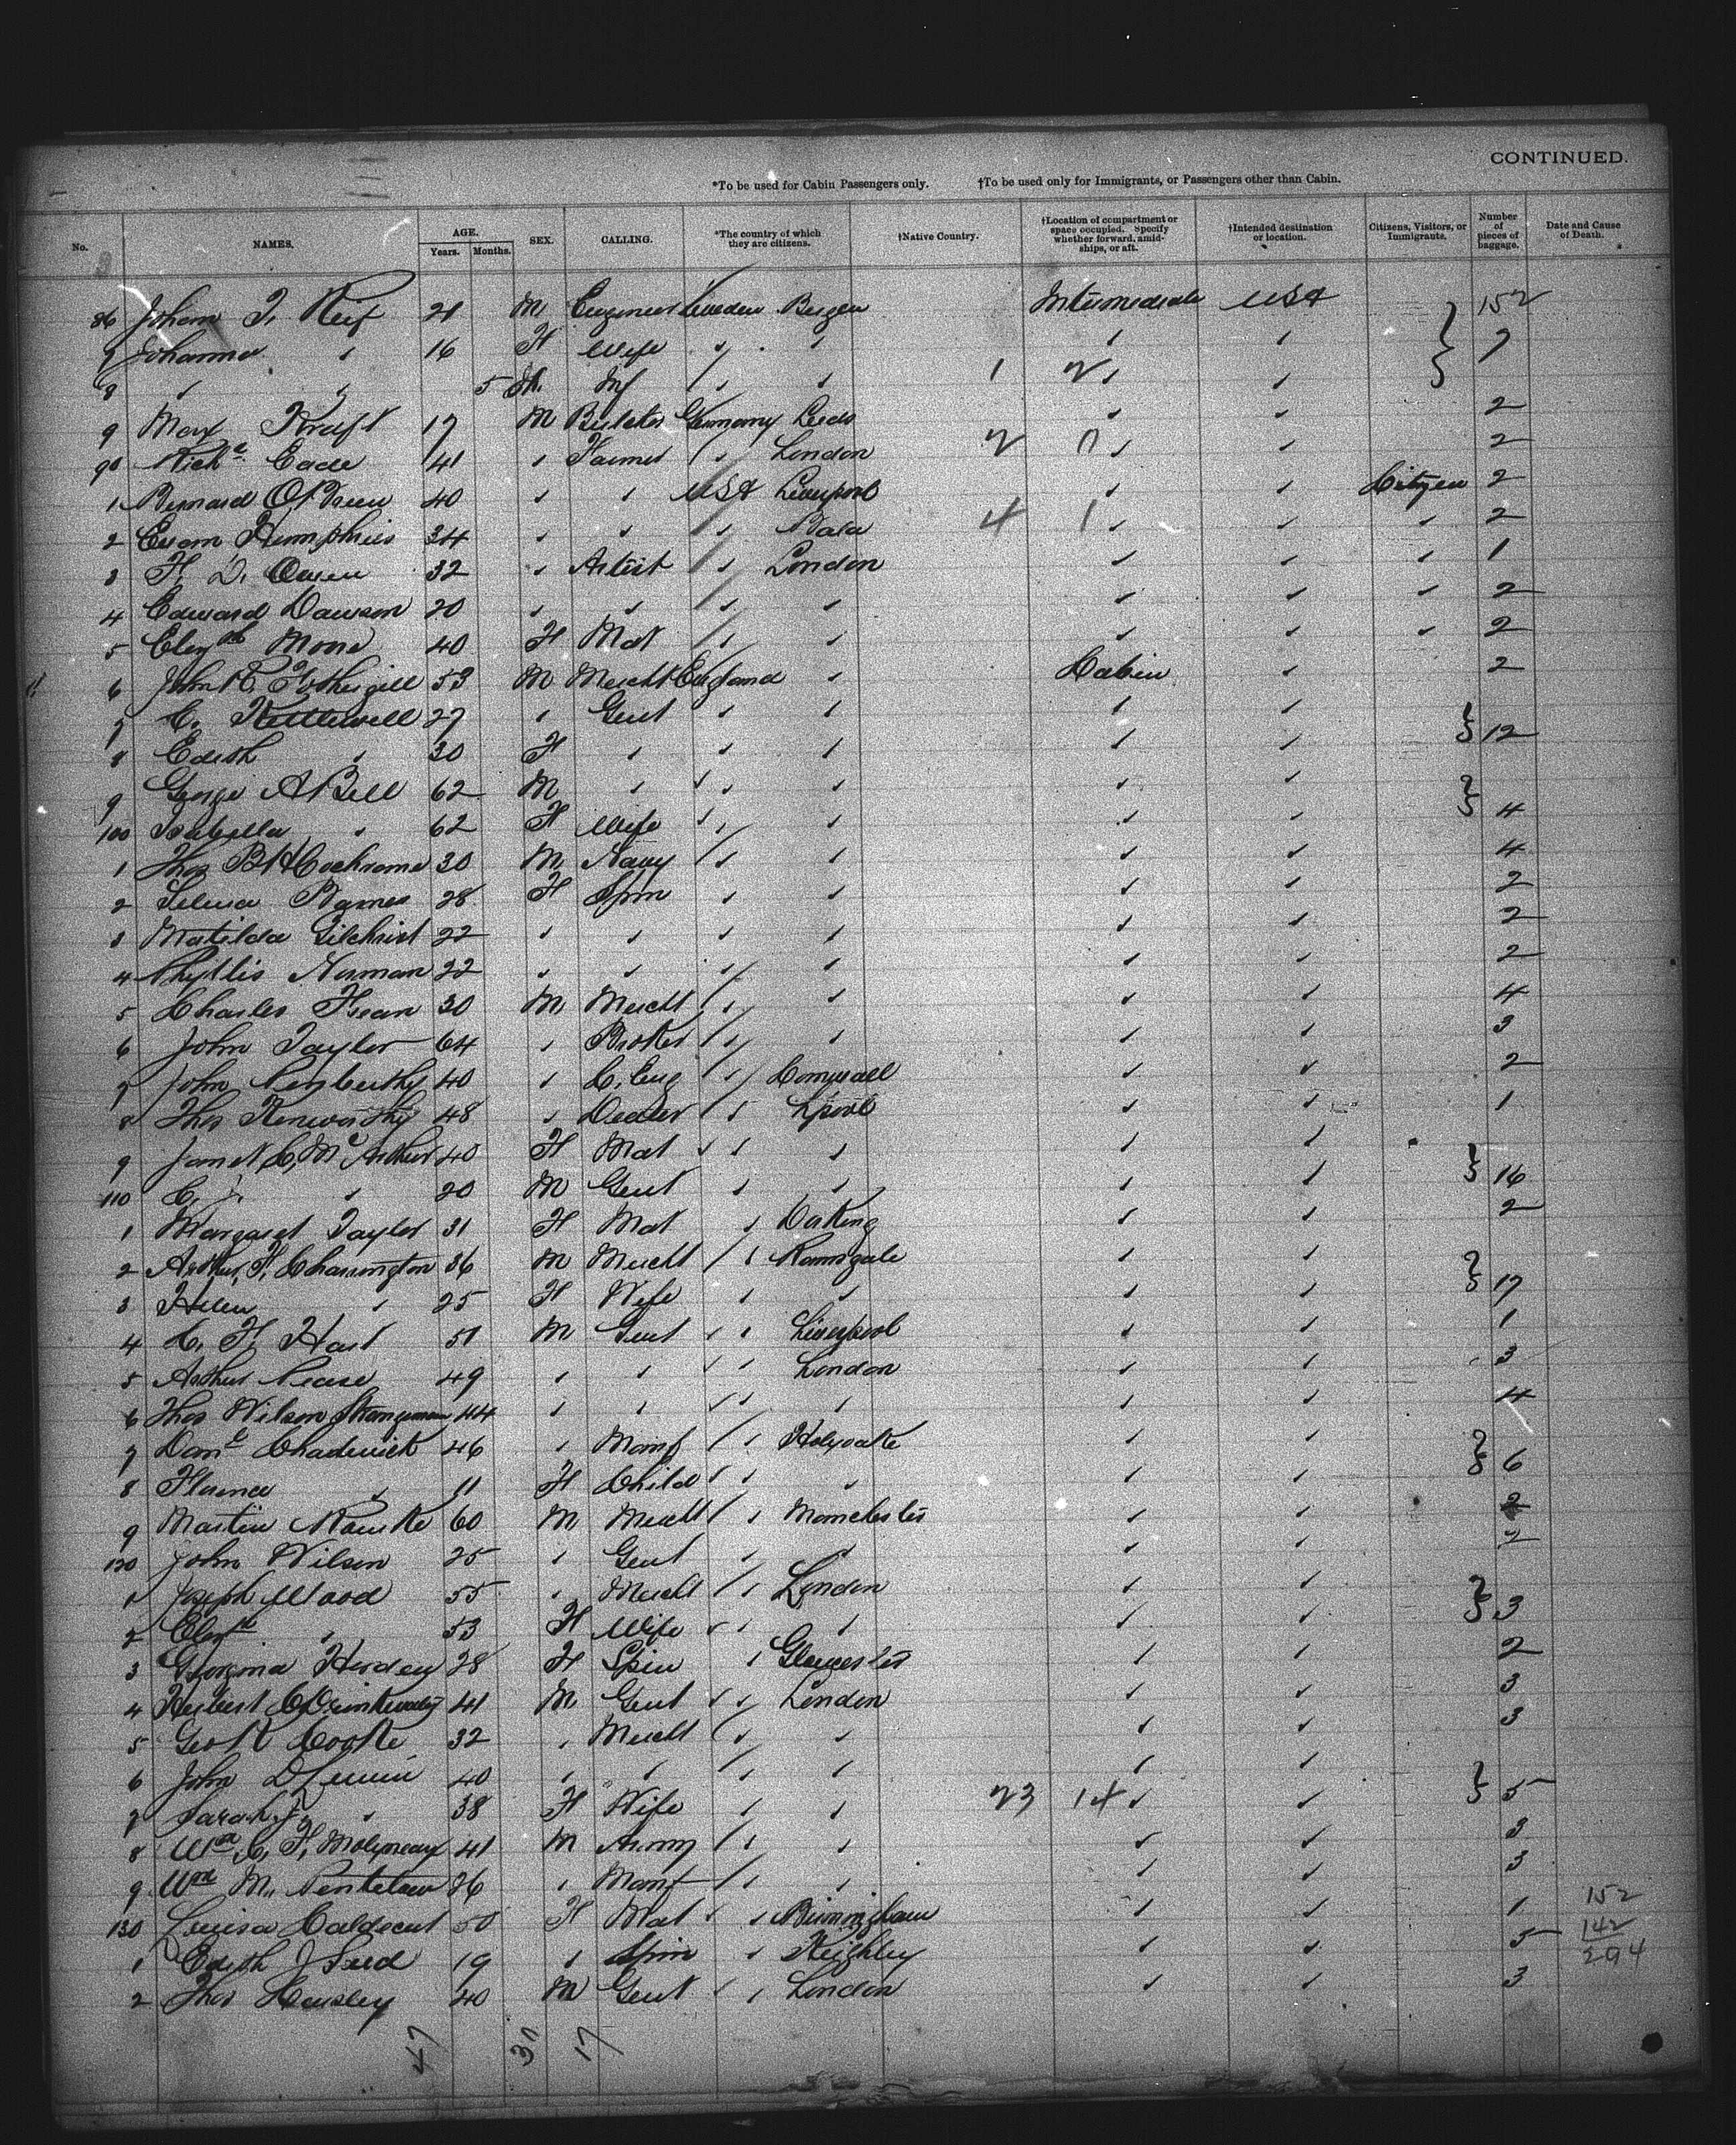 CONTINUED.
*To be used for Cabin Passengers only. †To be used only for Immigrants, or Passengers other than Cabin.
No. NAMES. AGE. Years. Months. SEX. CALLING. *The country of which they are citizens. †Native Country. †Location of compartment or space occupied. Specify whether forward, amidships, or aft. †Intended destination or location. Citizens, Visitors, or Immigrants. Number of pieces of baggage. Date and Cause of Death.
86 Johann 21 M Engineer Sweden Bergen Intermediate USA 152
7 Johanna " 16 F Wife " " " " 7
8 " " 5 M Inf " " 1 2 " "
9 Max Kraft 17 M Germany Leeds " " 2
90 Richd Eade 41 " Farmer " London 2 0 " " 2
1 Bernard O'Brien 40 " " USA Liverpool " " Citizen 2
2 Evan Humphries 34 " " " Bala 4 1 " " " 2
3 F. D. Owen 32 " Artist " London " " " 1
4 Edward Dawson 20 " " " " " " " 2
5 Elizth Moore 40 F Mat " " " " " 2
6 John R Fothergill 53 M Mercht England " Cabin " 2
7 C. Kettlewell 27 " Gent " " " "
8 Edith " 30 F " " " " " 12
9 George A Bell 62 M " " " " "
100 Isabella " 62 F Wife " " " " 4
1 Thos B H Cochrane 30 M Navy " " " " 4
2 Selina Barnes 28 F Spin " " " " 2
3 Matilda Gilchrist 22 " " " " " " 2
4 Phyllis Norman 22 " " " " " " 2
5 Charles 30 M Mercht " " " " 4
6 John Taylor 64 " Broker " " " " 3
7 John Penberthy 40 " C. Eng " Cornwall " " 2
8 Thos Kenworthy 48 " Dealer " Lpool " " 1
9 Janet C. Mc Arthur 40 F Mat " " " "
110 C. J. " 20 M Gent " " " " 16
1 Margaret Taylor 31 F Mat " Dorking " " 2
2 Arthur F. Charrington 36 M Mercht " Ramsgate " "
3 Helen " 25 F Wife " " " " 17
4 C. F. Hart 51 M Gent " Liverpool " " 1
5 Arthur Pease 49 " " " London " " 3
6 Thos Wilson 44 " " " " " " 4
7 Danl Chadwick 46 " Manf " Holyoake " "
8 Florence " 11 F Child " " " " 6
9 Martin 60 M Mercht " Manchester " " 2
120 John Wilson 25 " Gent " " " " 2
1 Joseph Wood 55 " Mercht " London " "
2 Elizth " 53 F Wife " " " " 3
3 Georgina 28 F Spin " Gloucester " " 2
4 Herbert C Drinkwater 41 M Gent " London " " 3
5 Geo R Cooke 32 " Mercht " " " " 3
6 John D 40 " " " " " "
7 Sarah J. " 38 F Wife " " 23 14 " " 5
8 Wm C. F. Molyneaux 41 M Army " " " " 3
9 Wm M. Pentelow 26 " Manf " " " " 3
130 Louisa Caldecut 50 F Mat " Birmingham " " 1 152
1 Edith J Seed 19 " Spin " Keighley " " 5 142
2 Thos 40 M Gent " London " " 3 294
47 30 17